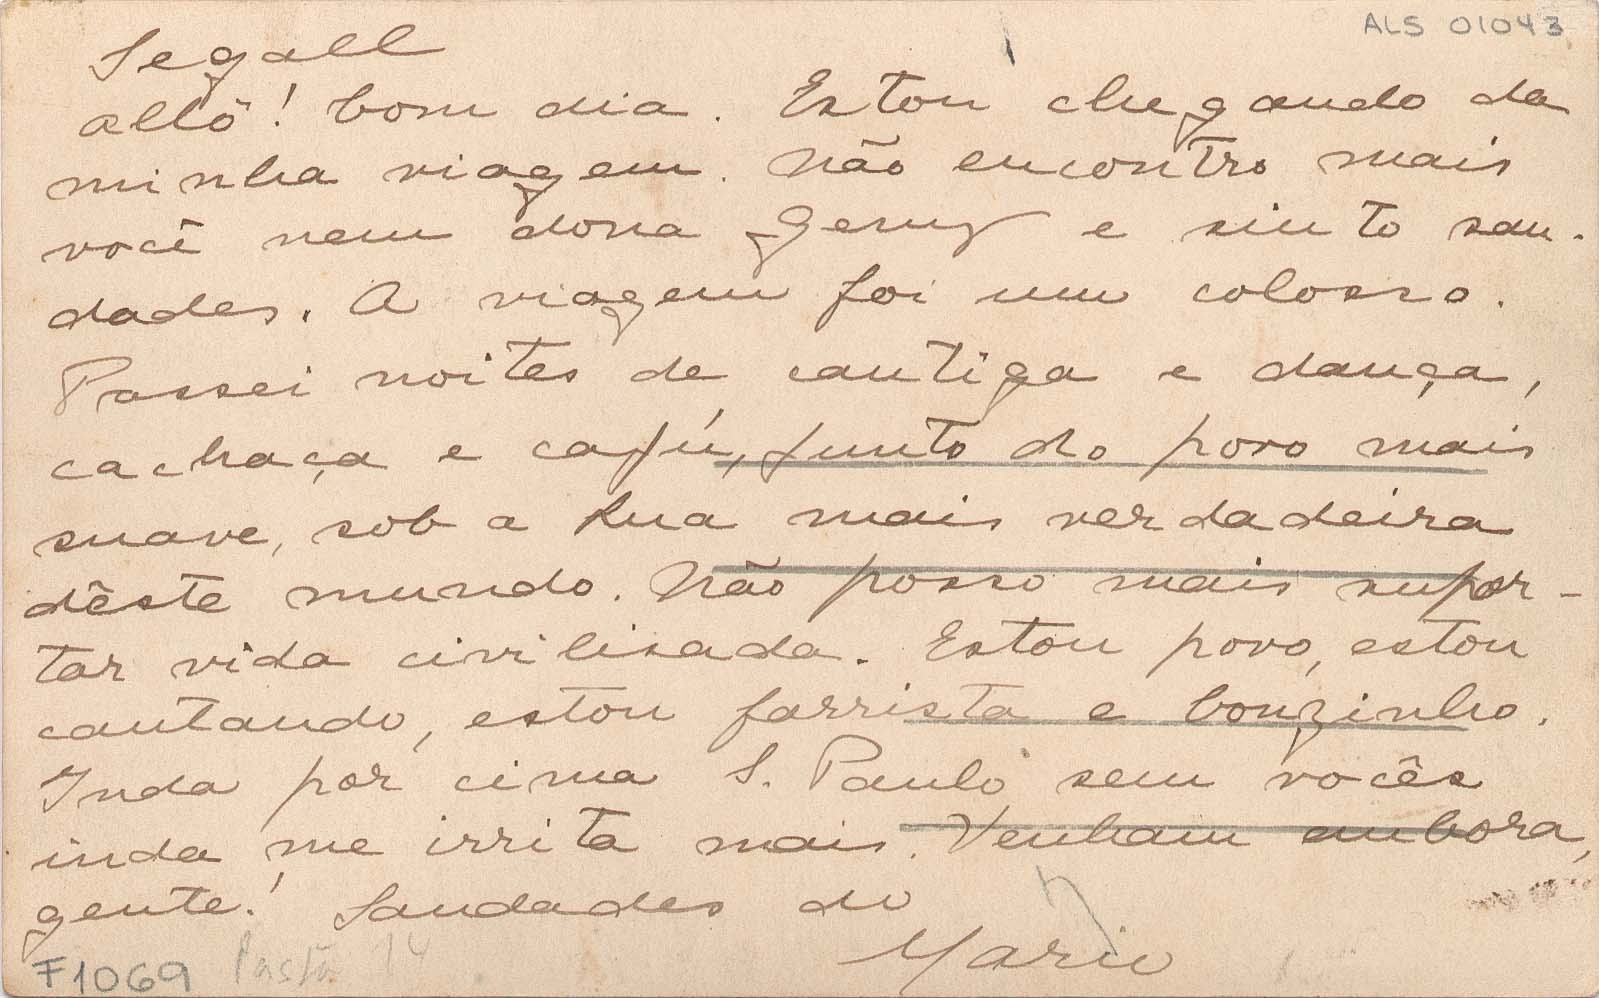 ALS 01043
Segall
allô! bom dia. Estou chegando da
minha viagem. Não encontro mais
você nem dona Jenny e sinto sau-
dades. A viagem foi um colosso.
Passei noites de cantiga e dança,
cachaça e cafú, junto do povo mais
suave, sob a lua mais verdadeira
dêste mundo. Não posso mais supor-
tar vida civilisada. Estou povo, estou
cantando, estou farrista e bonzinho.
Inda por cima S. Paulo sem vocês
inda me irrita mais. Venham embora,
gente! Saudades do
Mario
F1069 Pasta 14